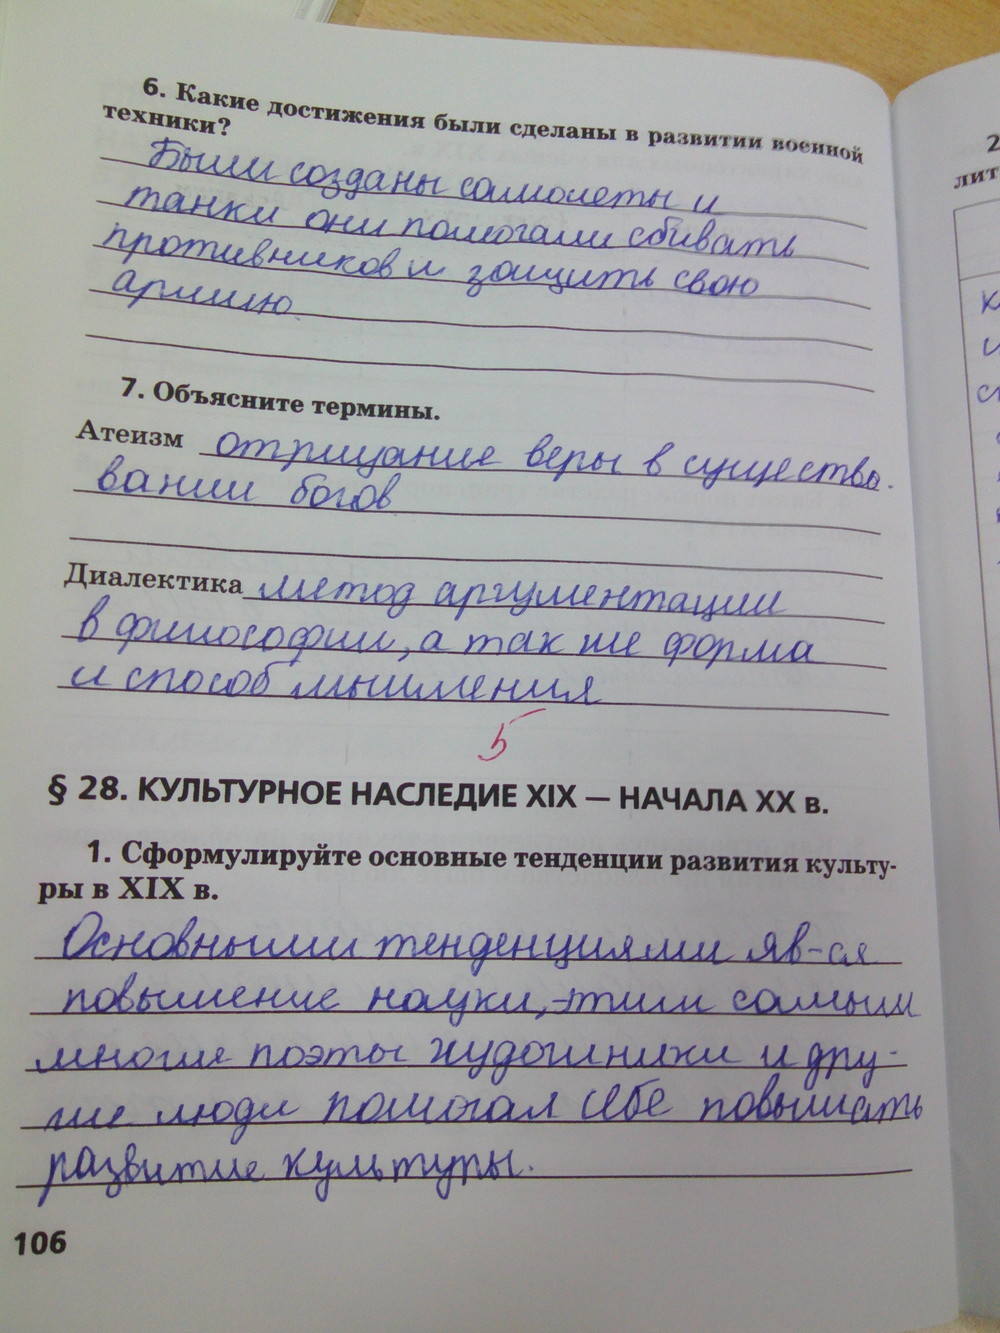 6. Какие достижения были сделаны в развитии военной
техники?
Были созданы самолеты и
танки они помогали сбивать
противников и защить свою
армию.
7. Объясните термины.
Атеизм отрицание веры в существо-
вании богов
Диалектика метод аргументации
в философии, а так же форма
и способ мышления
5
§ 28. КУЛЬТУРНОЕ НАСЛЕДИЕ XIX — НАЧАЛА XX в.
1. Сформулируйте основные тенденции развития культу-
ры в XIX в.
Основными тенденциями яв-ся
повышение науки, тим самым
многие поэты художники и дру-
гие люди помогал себе повышать
развитие культуры.
106
2
лит